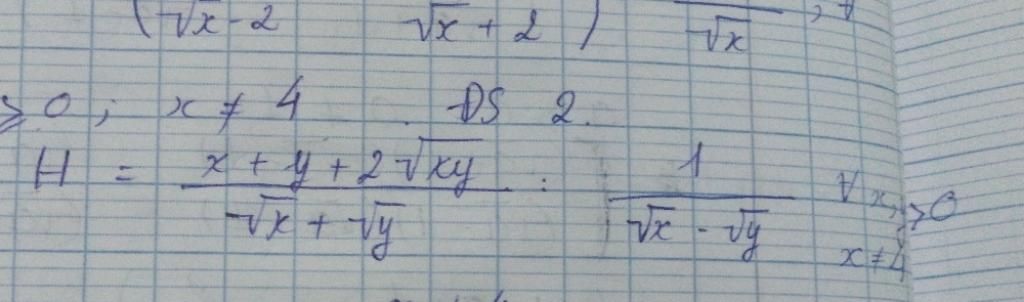 (√x - 2 √x + 2) √x ; ∀
≥ 0 ; x ≠ 4 . ĐS 2.
H = (x + y + 2√xy)/(√x + √y) : 1/(√x - √y) ∀ x, y > 0
x ≠